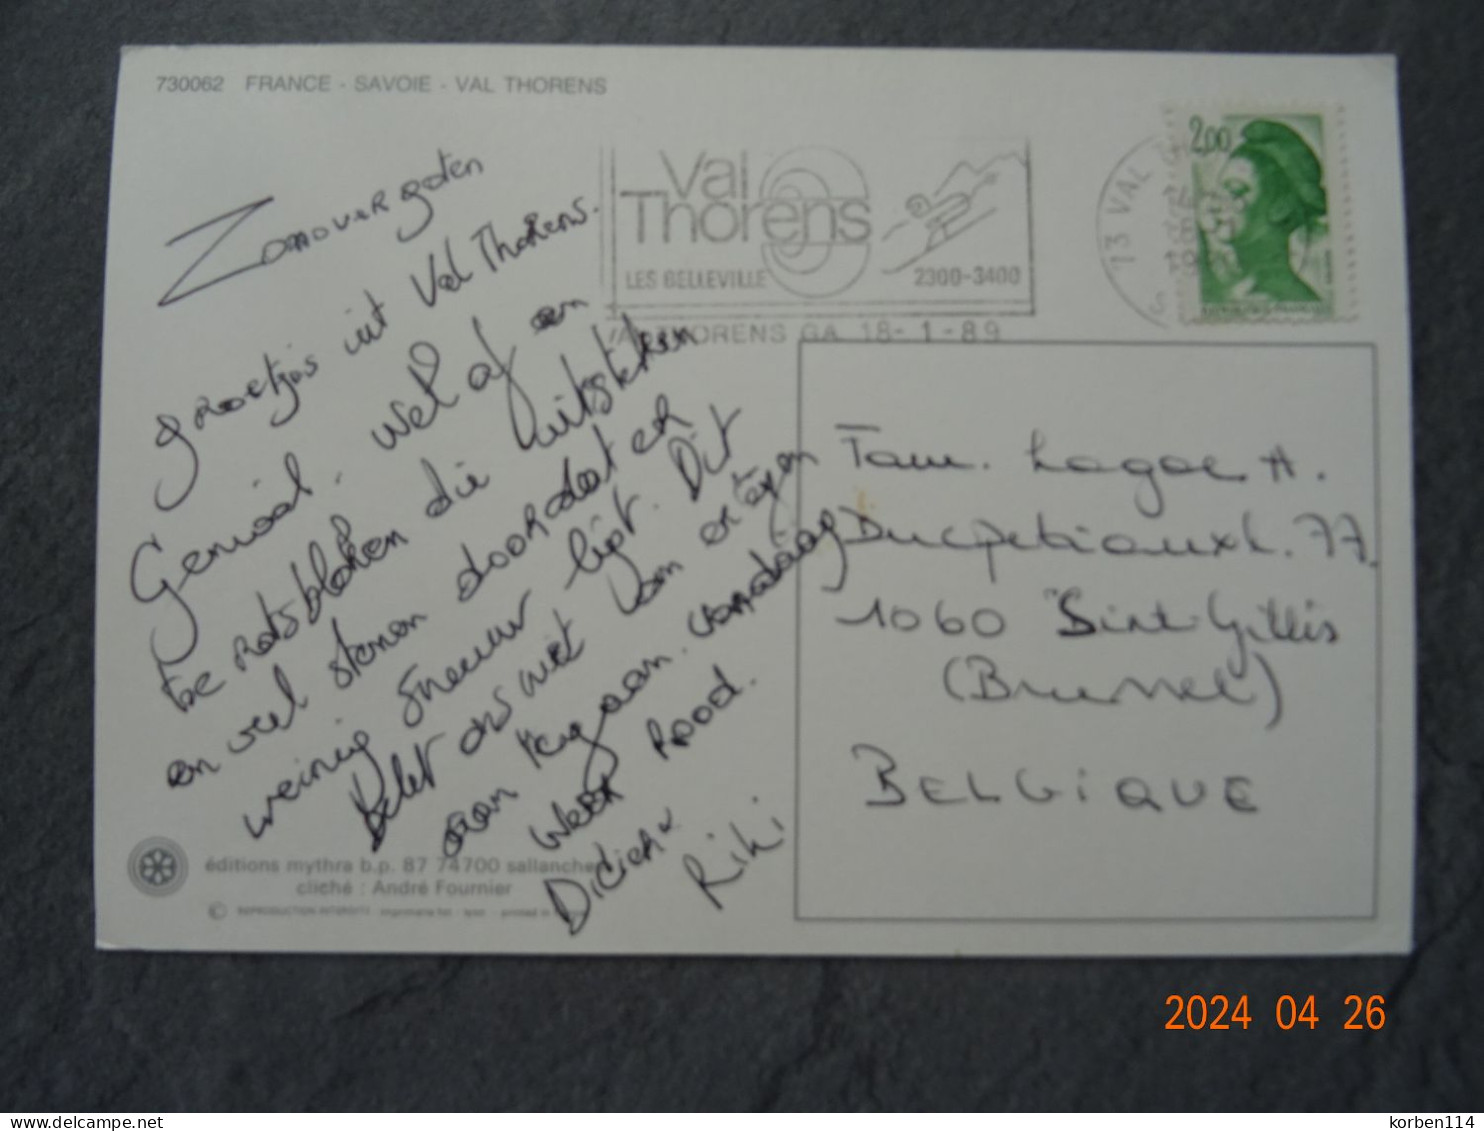 730062 FRANCE - SAVOIE - VAL THORENS
Zonovergoten
groetjes uit Val Thorens.
Geniaal. Wel af en
toe rotsblokken die uitsteken
en veel stenen doordat er
weinig sneeuw ligt. Dit
belet ons niet van er tegen
aan te gaan. Vandaag
weer rood.
Didier
Riki
Val
Thorens
LES BELLEVILLE
2300-3400
VAL THORENS GA 18-1-89
73 VAL
2,00
Fam. Lagae A.
Ducpetiauxl. 77
1060 Sint-Gillis
(Brussel)
BELGIQUE
éditions mythra b.p. 87 74700 sallanches
cliché : André Fournier
© REPRODUCTION INTERDITE
2024 04 26
delcampe.net
korben114